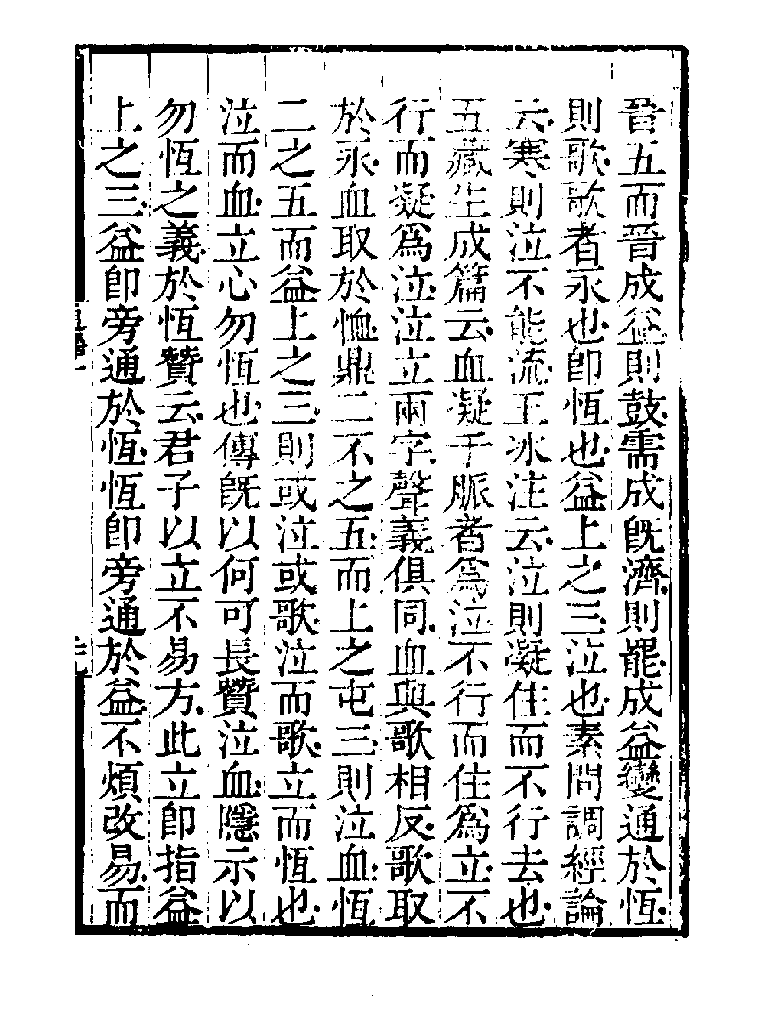 晉五而晉成益則鼓需成旣濟則罷成益變通於恆
則歌歌者永也卽恆也益上之三泣也素問調經論
云寒則泣不能流王冰注云泣則凝住而不行去也
五藏生成篇云血凝于脈者爲泣不行而住爲立不
行而凝爲泣泣立兩字聲義俱同血與歌相反歌取
於永血取於恤鼎二不之五而上之屯三則泣血恆
二之五而益上之三則或泣或歌泣而歌立而恆也
泣而血立心勿恆也傳旣以何可長贊泣血隱示以
勿恆之義於恆贊云君子以立不易方此立卽指益
上之三益卽旁通於恆恆卽旁通於益不煩改易而